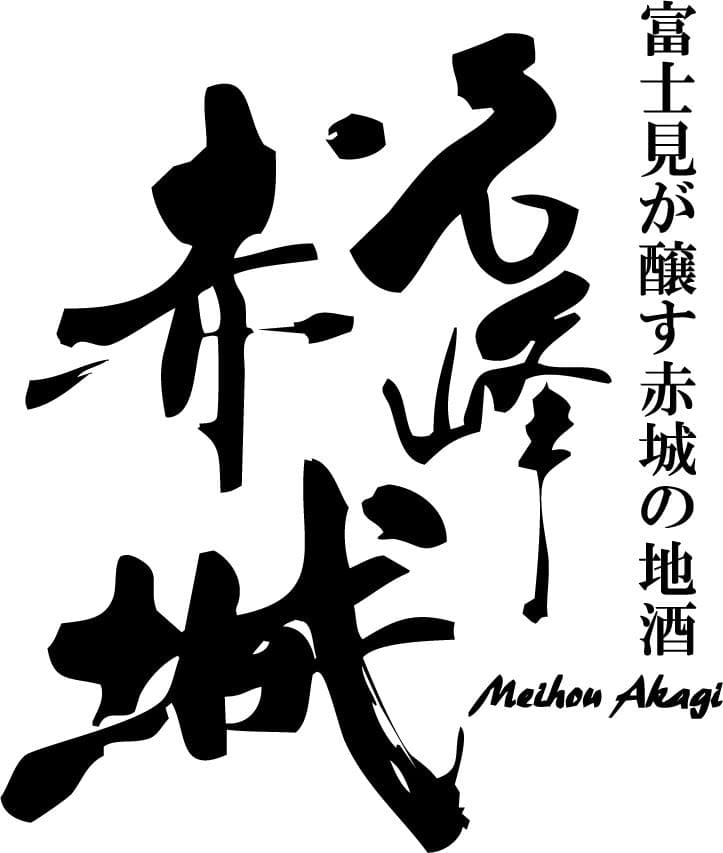 富士見が醸す赤城の地酒
名峰
赤城
Meihou Akagi